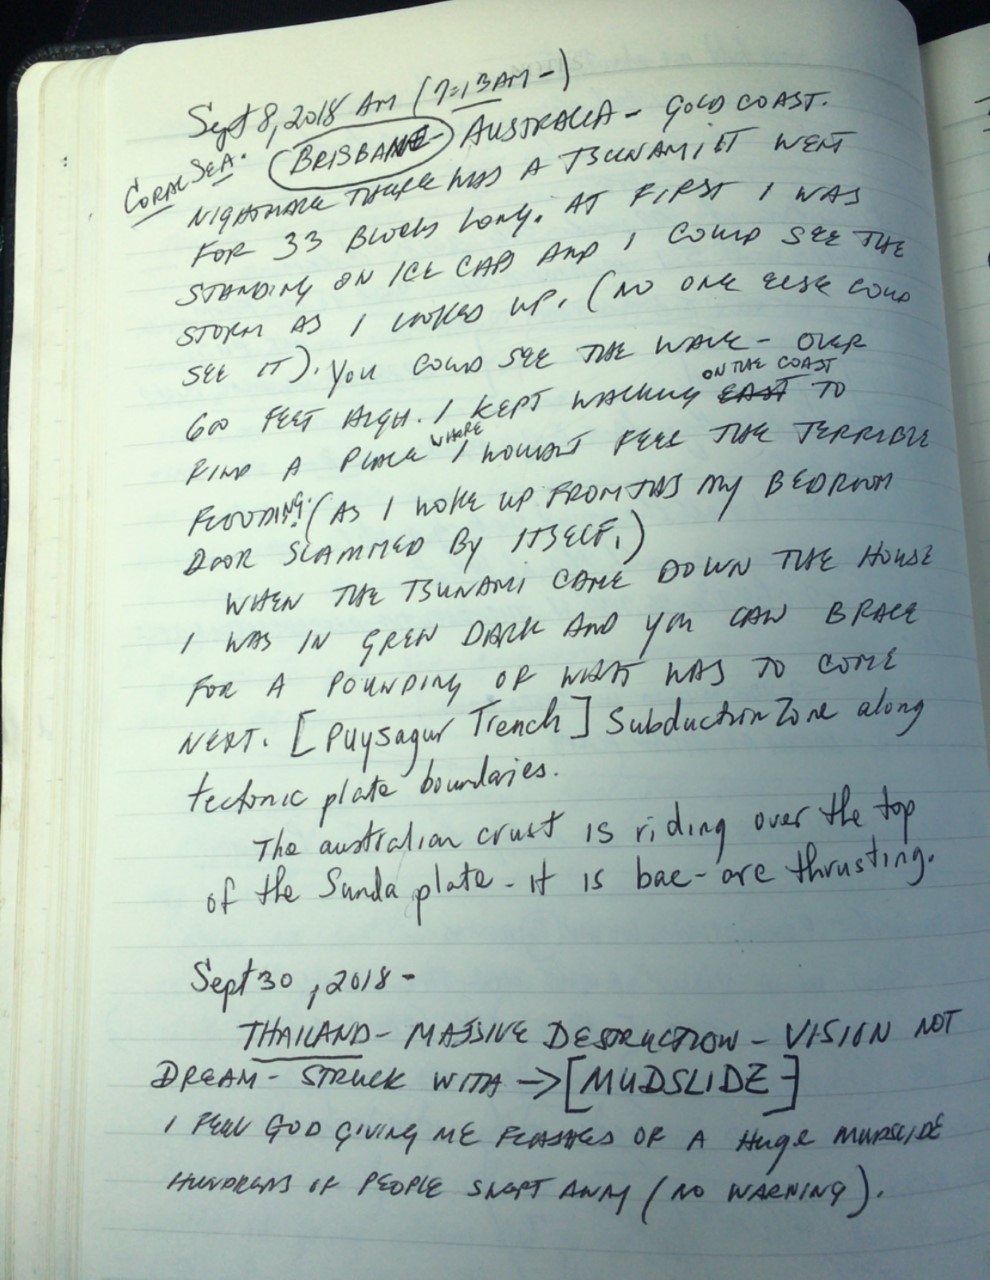 Sept 8, 2018 AM (7:13AM-)
CORAL SEA. BRISBANE AUSTRALIA - GOLD COAST.
NIGHTMARE THERE WAS A TSUNAMI IT WENT
FOR 33 BLOCKS LONG. AT FIRST I WAS
STANDING ON ICE CAP AND I COULD SEE THE
STORM AS I LOOKED UP. (NO ONE ELSE COULD
SEE IT). YOU COULD SEE THE WAVE - OVER
ON THE COAST
600 FEET HIGH. I KEPT WALKING EAST TO
FIND A PLACE WHERE I WOULDN'T FEEL THE TERRIBLE
FLOODING. (AS I WOKE UP FROM THIS MY BEDROOM
DOOR SLAMMED BY ITSELF.)
WHEN THE TSUNAMI CAME DOWN THE HOUSE
I WAS IN GREW DARK AND YOU CAN BRACE
FOR A POUNDING OF WHAT WAS TO COME
NEXT. [Puysagur Trench] Subduction Zone along
tectonic plate boundaries.
The australian crust is riding over the top
of the Sunda plate - it is bac-arc thrusting.
Sept 30, 2018 -
THAILAND - MASSIVE DESTRUCTION - VISION NOT
DREAM - STRUCK WITH → [MUDSLIDE]
I FEEL GOD GIVING ME FLASHES OF A HUge MUDSLIDE
HUNDREDS OF PEOPLE SWEPT AWAY (NO WARNING).